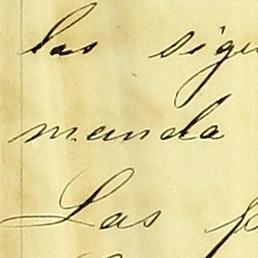 las sigu
manda
Las p